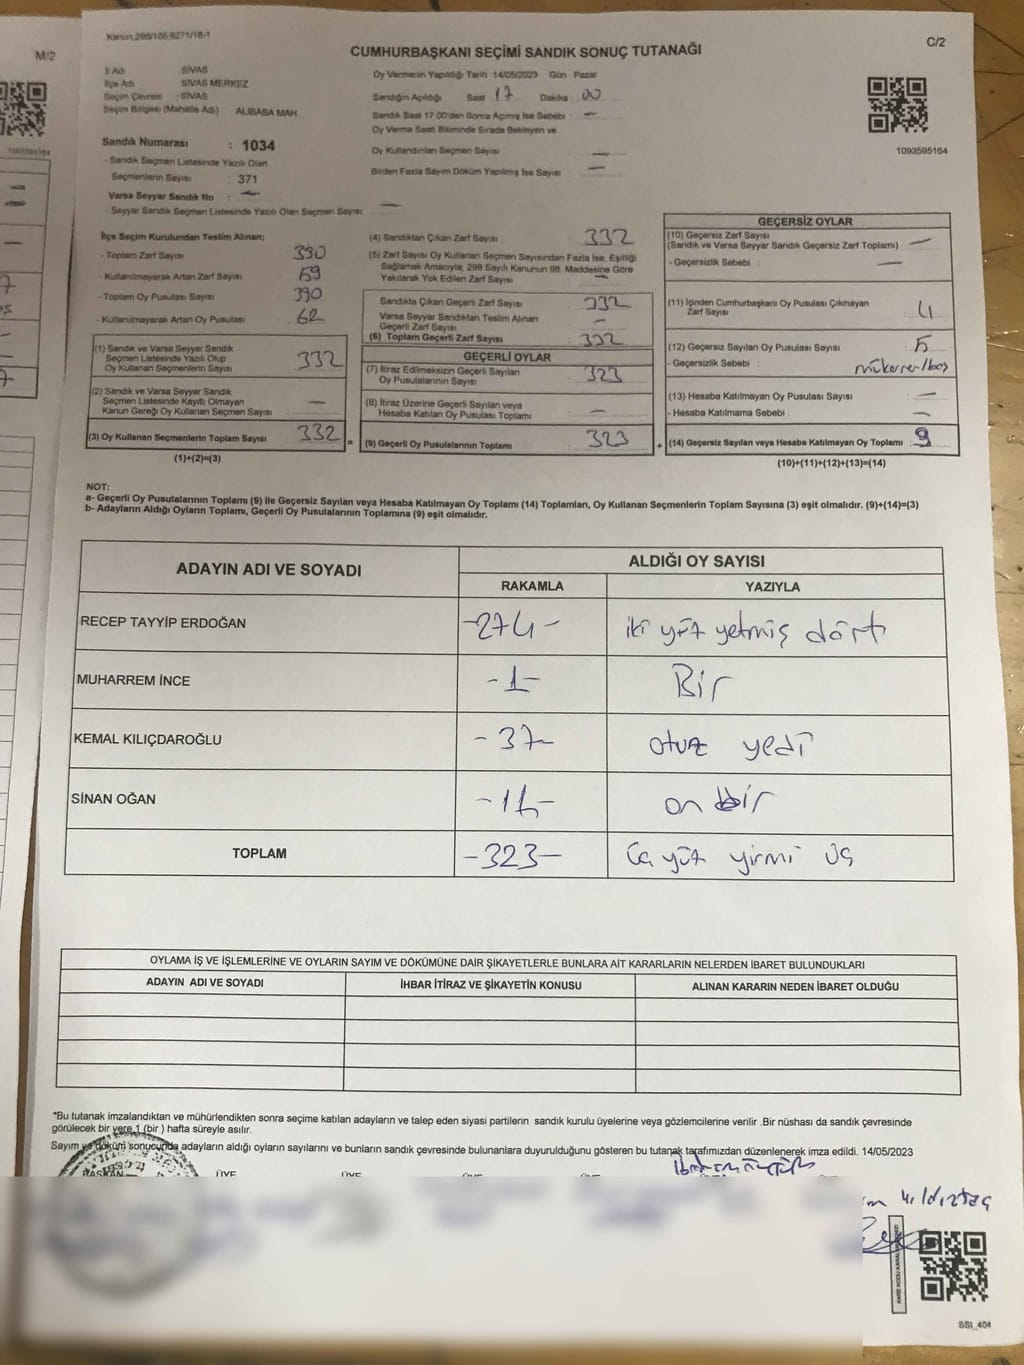 Kanun,298/105,6271/16-1
M/2
C/2
CUMHURBAŞKANI SEÇİMİ SANDIK SONUÇ TUTANAĞI
İl Adı : SİVAS
İlçe Adı : SİVAS MERKEZ
Seçim Çevresi : SİVAS
Seçim Bölgesi (Mahalle Adı) ALIBABA MAH
Oy Vermenin Yapıldığı Tarih 14/05/2023 Gün Pazar
Sandığın Açıldığı Saat 17 Dakika : 00
Sandık Saat 17.00'den Sonra Açılmış İse Sebebi : —
Oy Verme Saati Bitiminde Sırada Bekleyen ve
Oy Kullandırılan Seçmen Sayısı —
Birden Fazla Sayım Döküm Yapılmış İse Sayısı : —
1093595164
Sandık Numarası : 1034
- Sandık Seçmen Listesinde Yazılı Olan
Seçmenlerin Sayısı : 371
Varsa Seyyar Sandık No : —
- Seyyar Sandık Seçmen Listesinde Yazılı Olan Seçmen Sayısı : —
İlçe Seçim Kurulundan Teslim Alınan;
- Toplam Zarf Sayısı 390
- Kullanılmayarak Artan Zarf Sayısı 59
- Toplam Oy Pusulası Sayısı 390
- Kullanılmayarak Artan Oy Pusulası 62
(1) Sandık ve Varsa Seyyar Sandık
Seçmen Listesinde Yazılı Olup
Oy Kullanan Seçmenlerin Sayısı 332
(2) Sandık ve Varsa Seyyar Sandık
Seçmen Listesinde Kayıtlı Olmayan
Kanun Gereği Oy Kullanan Seçmen Sayısı : —
(3) Oy Kullanan Seçmenlerin Toplam Sayısı 332 =
(1)+(2)=(3)
(4) Sandıktan Çıkan Zarf Sayısı 332
(5) Zarf Sayısı Oy Kullanan Seçmen Sayısından Fazla İse, Eşitliği
Sağlamak Amacıyla, 298 Sayılı Kanunun 98. Maddesine Göre
Yakılarak Yok Edilen Zarf Sayısı —
Sandıkta Çıkan Geçerli Zarf Sayısı : 332
Varsa Seyyar Sandıktan Teslim Alınan
Geçerli Zarf Sayısı —
(6) Toplam Geçerli Zarf Sayısı : 332
GEÇERLİ OYLAR
(7) İtiraz Edilmeksizin Geçerli Sayılan
Oy Pusulalarının Sayısı : 323
(8) İtiraz Üzerine Geçerli Sayılan veya
Hesaba Katılan Oy Pusulası Toplamı —
(9) Geçerli Oy Pusulalarının Toplamı : 323 +
GEÇERSİZ OYLAR
(10) Geçersiz Zarf Sayısı
(Sandık ve Varsa Seyyar Sandık Geçersiz Zarf Toplamı) : —
- Geçersizlik Sebebi : —
(11) İçinden Cumhurbaşkanı Oy Pusulası Çıkmayan
Zarf Sayısı 4
(12) Geçersiz Sayılan Oy Pusulası Sayısı : 5
- Geçersizlik Sebebi : mükerrer/boş
(13) Hesaba Katılmayan Oy Pusulası Sayısı : —
- Hesaba Katılmama Sebebi : —
(14) Geçersiz Sayılan veya Hesaba Katılmayan Oy Toplamı : 9
(10)+(11)+(12)+(13)=(14)
NOT:
a- Geçerli Oy Pusulalarının Toplamı (9) ile Geçersiz Sayılan veya Hesaba Katılmayan Oy Toplamı (14) Toplamları, Oy Kullanan Seçmenlerin Toplam Sayısına (3) eşit olmalıdır. (9)+(14)=(3)
b- Adayların Aldığı Oyların Toplamı, Geçerli Oy Pusulalarının Toplamına (9) eşit olmalıdır.
ADAYIN ADI VE SOYADI
ALDIĞI OY SAYISI
RAKAMLA YAZIYLA
RECEP TAYYİP ERDOĞAN -274- iki yüz yetmiş dört
MUHARREM İNCE -1- Bir
KEMAL KILIÇDAROĞLU -37- otuz yedi
SİNAN OĞAN -11- on bir
TOPLAM -323- Üç yüz yirmi üç
OYLAMA İŞ VE İŞLEMLERİNE VE OYLARIN SAYIM VE DÖKÜMÜNE DAİR ŞİKAYETLERLE BUNLARA AİT KARARLARIN NELERDEN İBARET BULUNDUKLARI
ADAYIN ADI VE SOYADI İHBAR İTİRAZ VE ŞİKAYETİN KONUSU ALINAN KARARIN NEDEN İBARET OLDUĞU
*Bu tutanak imzalandıktan ve mühürlendikten sonra seçime katılan adayların ve talep eden siyasi partilerin sandık kurulu üyelerine veya gözlemcilerine verilir .Bir nüshası da sandık çevresinde
görülecek bir yere 1 (bir ) hafta süreyle asılır.
Sayım ve döküm sonucunda adayların aldığı oyların sayılarını ve bunların sandık çevresinde bulunanlara duyurulduğunu gösteren bu tutanak tarafımızdan düzenlenerek imza edildi. 14/05/2023
BAŞKAN ÜYE ÜYE ÜYE ÜYE
SSI_404